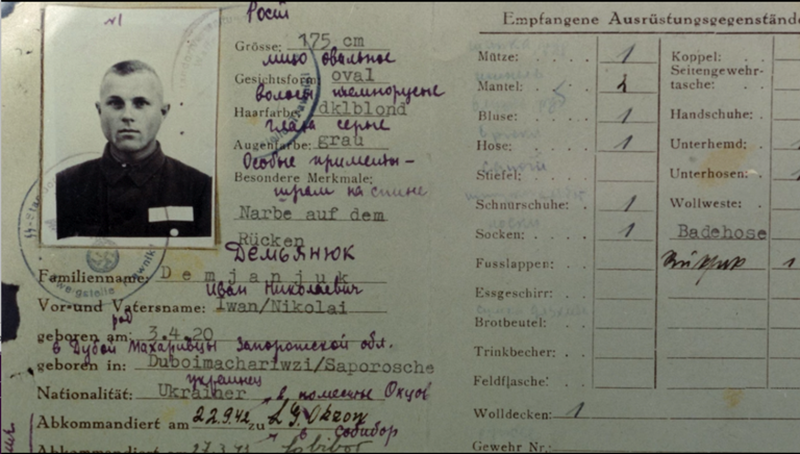 №1
Рост
Grösse: 175 cm
лицо овальное
Gesichtsform: oval
волосы темнорусые
Haarfarbe: dklblond
глаза серые
Augenfarbe: grau
Особые приметы –
Besondere Merkmale:
шрам на спине
Narbe auf dem
Rücken
Демьянюк
Familienname: Demjanjuk
Иван Николаевич
Vor- und Vatersname: Iwan/Nikolai
род
geboren am: 3.4.20
в Дубой Махаривцы Запорожской обл.
geboren in: Duboimachariwzi/Saporosche
украинец
Nationalität: Ukrainer
в поместье Окцов
Abkommandiert am 22.9.42 zu L.G. Okzow
в Собибор
Abkommandiert am 27.3.43 Sobibor
Empfangene Ausrüstungsgegenstände
Mütze: 1
Mantel: 1
Bluse: 1
Hose: 1
Stiefel:
Schnürschuhe: 1
Socken: 1
Fusslappen:
Essgeschirr:
Brotbeutel:
Trinkbecher:
Feldflasche:
Wolldecken: 1
Gewehr Nr.:
Koppel:
Seitengewehr-
tasche:
Handschuhe:
Unterhemd: 1
Unterhosen: 1
Wollweste:
Badehose
1